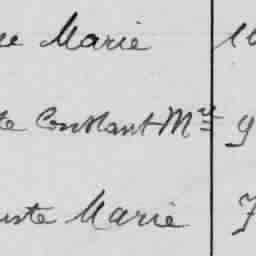 ee Marie 16
te Constant Mie 9
uste Marie 7